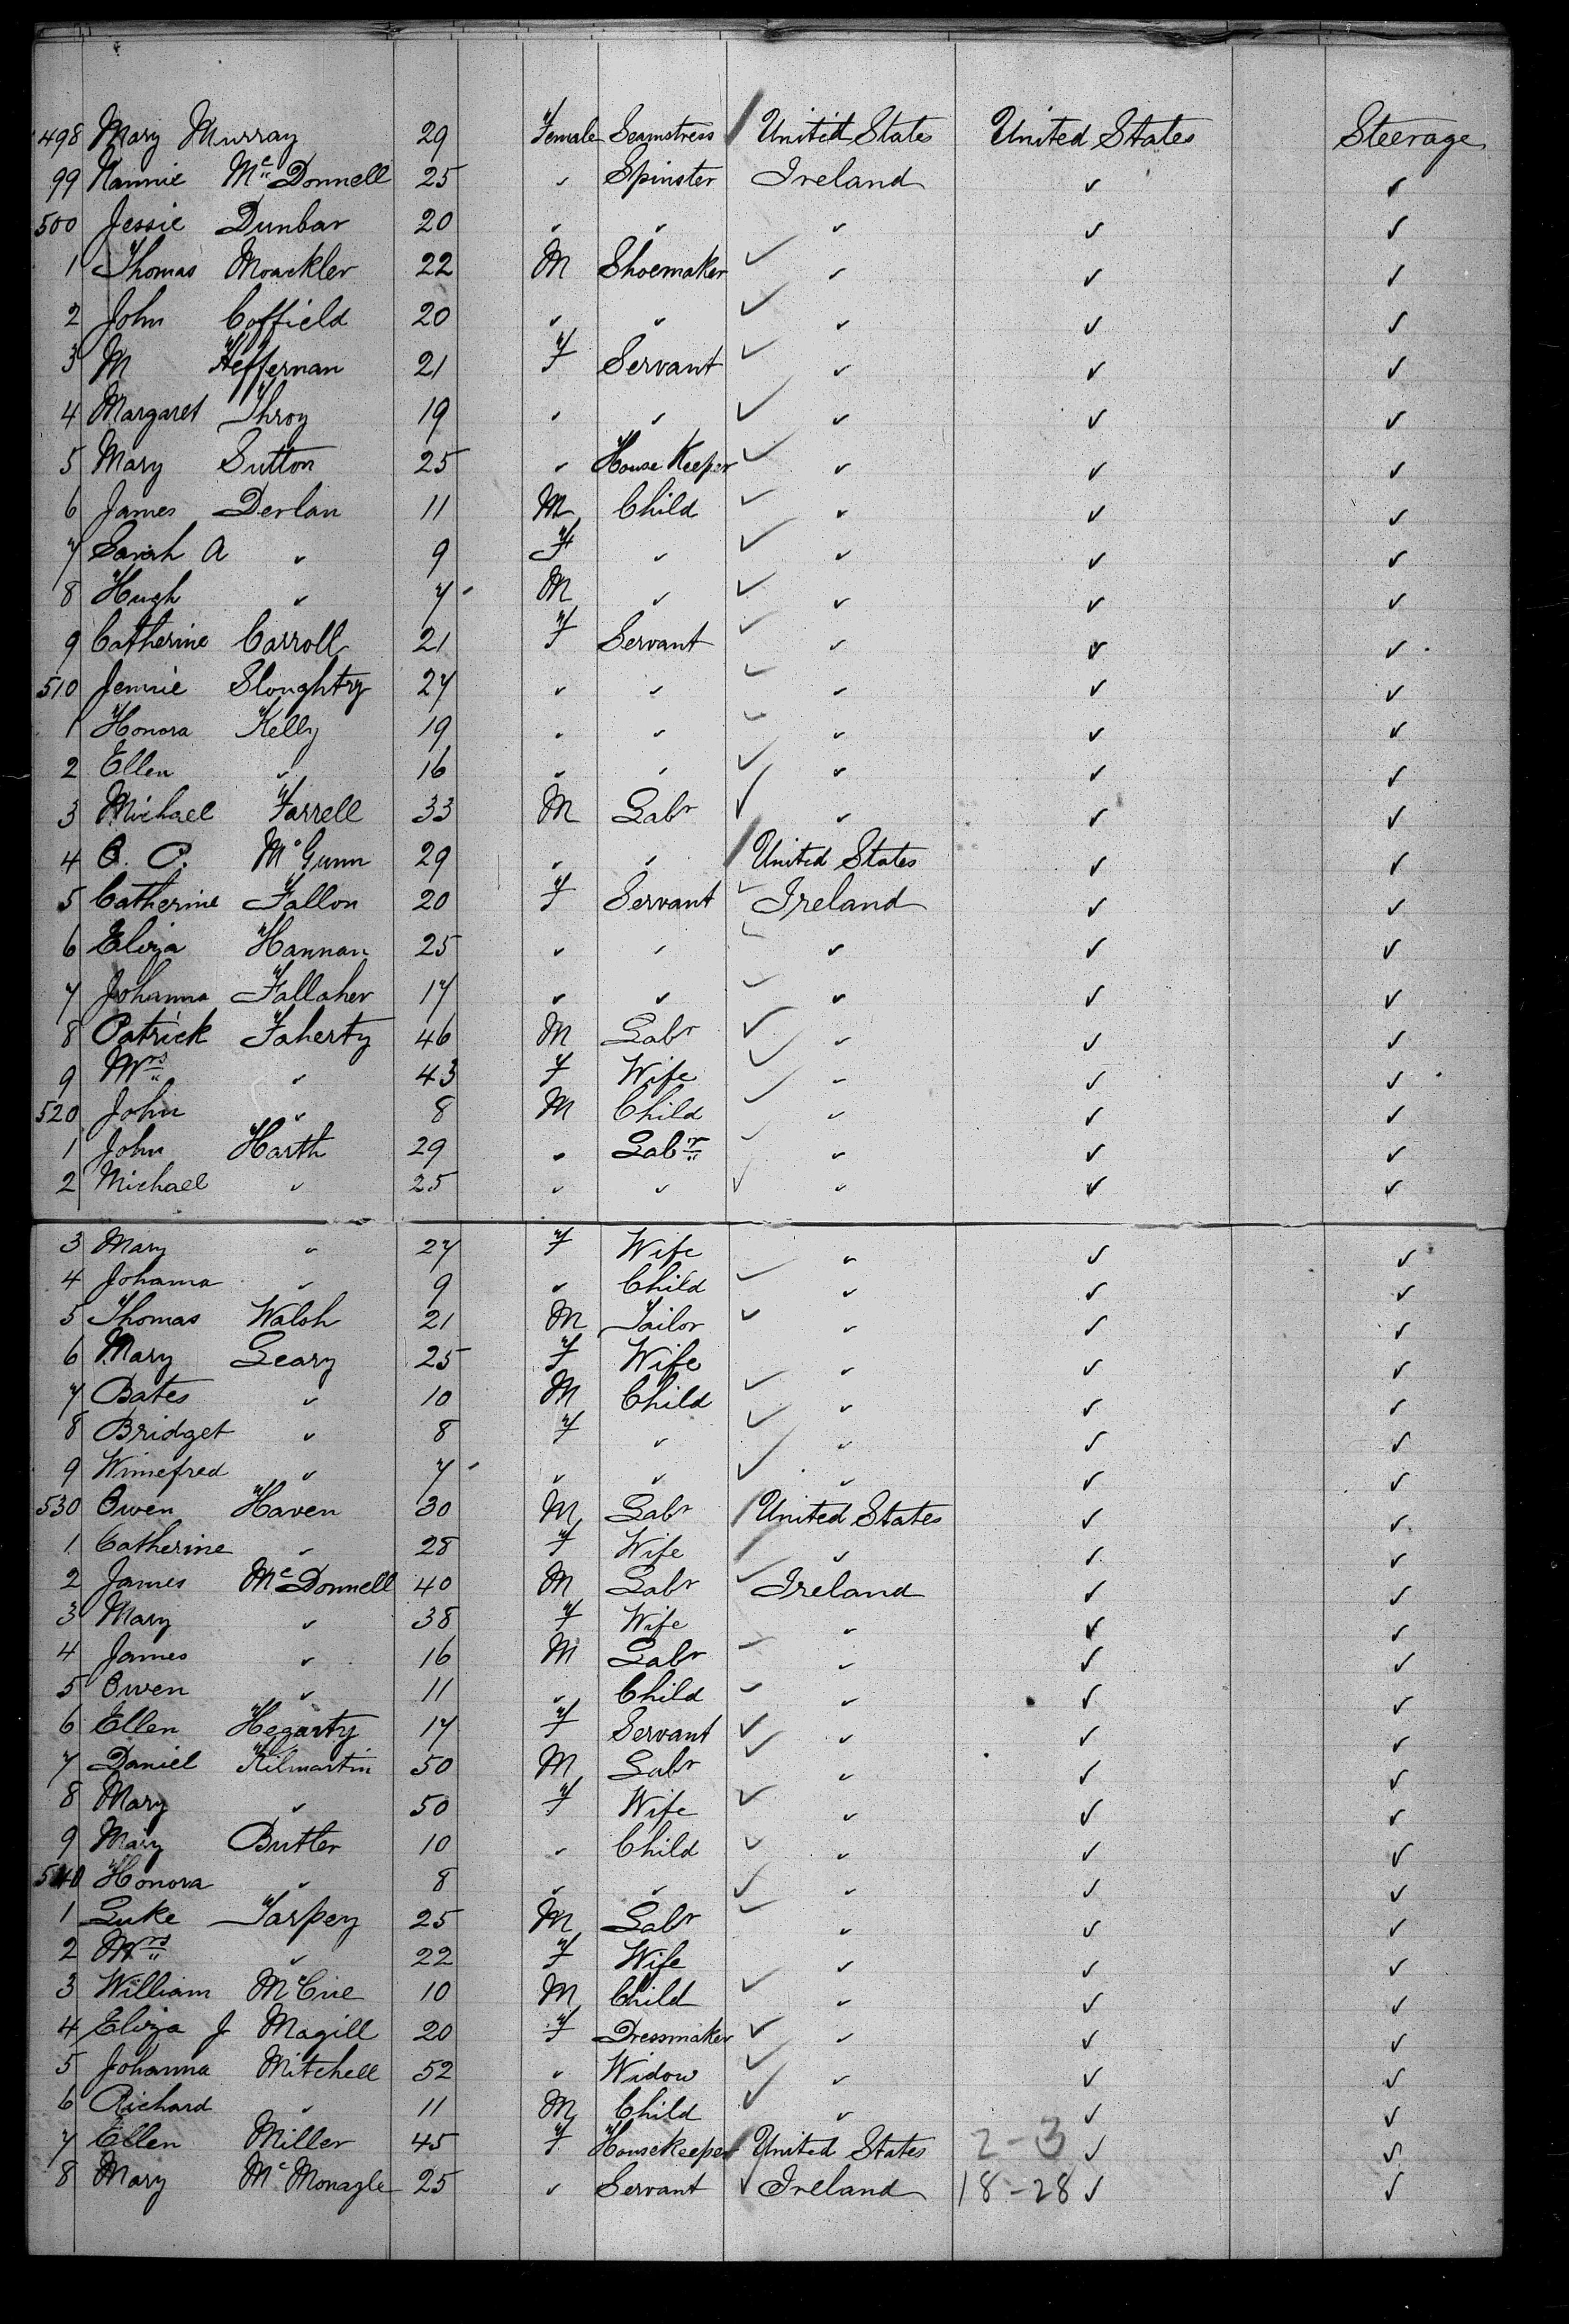 498 Mary Murray 29 Female Seamstress United States United States Steerage
99 Nannie McDonnell 25 " Spinster Ireland " "
500 Jessie Dunbar 20 " " " " "
1 Thomas Moackler 22 M Shoemaker " " "
2 John Coffield 20 " " " " "
3 M Heffernan 21 F Servant " " "
4 Margaret Throy 19 " " " " "
5 Mary Sutton 25 " House Keeper " " "
6 James Derlan 11 M Child " " "
7 Sarah A " 9 F " " " "
8 Hugh " 7 M " " " "
9 Catherine Carroll 21 F Servant " " "
510 Jennie Sloughtry 27 " " " " "
1 Honora Kelly 19 " " " " "
2 Ellen " 16 " " " " "
3 Michael Farrell 33 M Labr " " "
4 O. P. McGunn 29 " " United States " "
5 Catherine Fallon 20 F Servant Ireland " "
6 Eliza Hannan 25 " " " " "
7 Johanna Fallaher 17 " " " " "
8 Patrick Faherty 46 M Labr " " "
9 Mrs " 43 F Wife " " "
520 John " 8 M Child " " "
1 John Harth 29 " Labr " " "
2 Michael " 25 " " " " "
3 Mary " 27 F Wife " " "
4 Johanna " 9 " Child " " "
5 Thomas Walsh 21 M Tailor " " "
6 Mary Leary 25 F Wife " " "
7 Bates " 10 M Child " " "
8 Bridget " 8 F " " " "
9 Winefred " 7 " " " " "
530 Owen Haven 30 M Labr United States " "
1 Catherine " 28 F Wife " " "
2 James McDonnell 40 M Labr Ireland " "
3 Mary " 38 F Wife " " "
4 James " 16 M Labr " " "
5 Owen " 11 " Child " " "
6 Ellen Hegarty 17 F Servant " " "
7 Daniel Kilmartin 50 M Labr " " "
8 Mary " 50 F Wife " " "
9 Mary Butler 10 " Child " " "
540 Honora " 8 " " " " "
1 Luke Tarpey 25 M Labr " " "
2 Mrs " 22 F Wife " " "
3 William McCue 10 M Child " " "
4 Eliza J Magill 20 F Dressmaker " " "
5 Johanna Mitchell 52 " Widow " " "
6 Richard " 11 M Child " " "
7 Ellen Miller 45 F Housekeeper United States 2-3 " "
8 Mary McMonagle 25 " Servant Ireland 18-28 " "